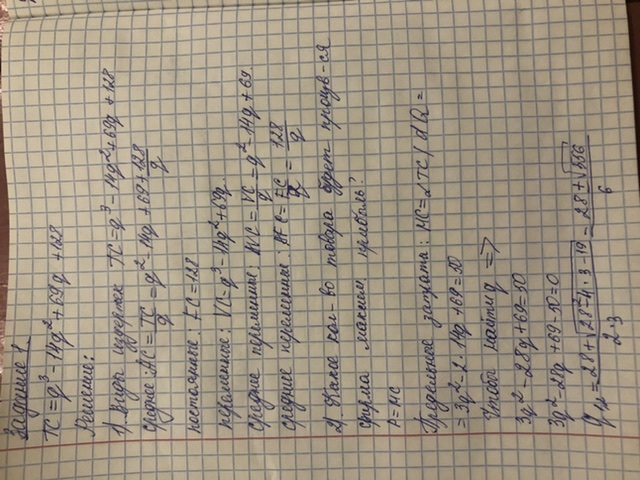 Задание 1.
TC = q³ - 14q² + 69q + 128
Решение:
1) Виды издержек TC = q³ - 14q² + 69q + 128
Средние: AC = TC/q = q² - 14q + 69 + 128/q
постоянные: FC = 128
переменные: VC = q³ - 14q² + 69q.
средние переменные: AVC = VC/q = q² - 14q + 69.
средние переменные: AFC = FC/q = 128/q
2. Какое кол-во товара будет произв-ся
фирма максим прибыль?
P = MC
Предельные затраты: MC = dTC/dQ =
= 3q² - 2·14q + 69 = 50
Чтобы найти q =>
3q² - 28q + 69 = 50
3q² - 28q + 69 - 50 = 0
q = 28 + √28² - 4·3·19 / 2·3 = 28 + √556 / 6